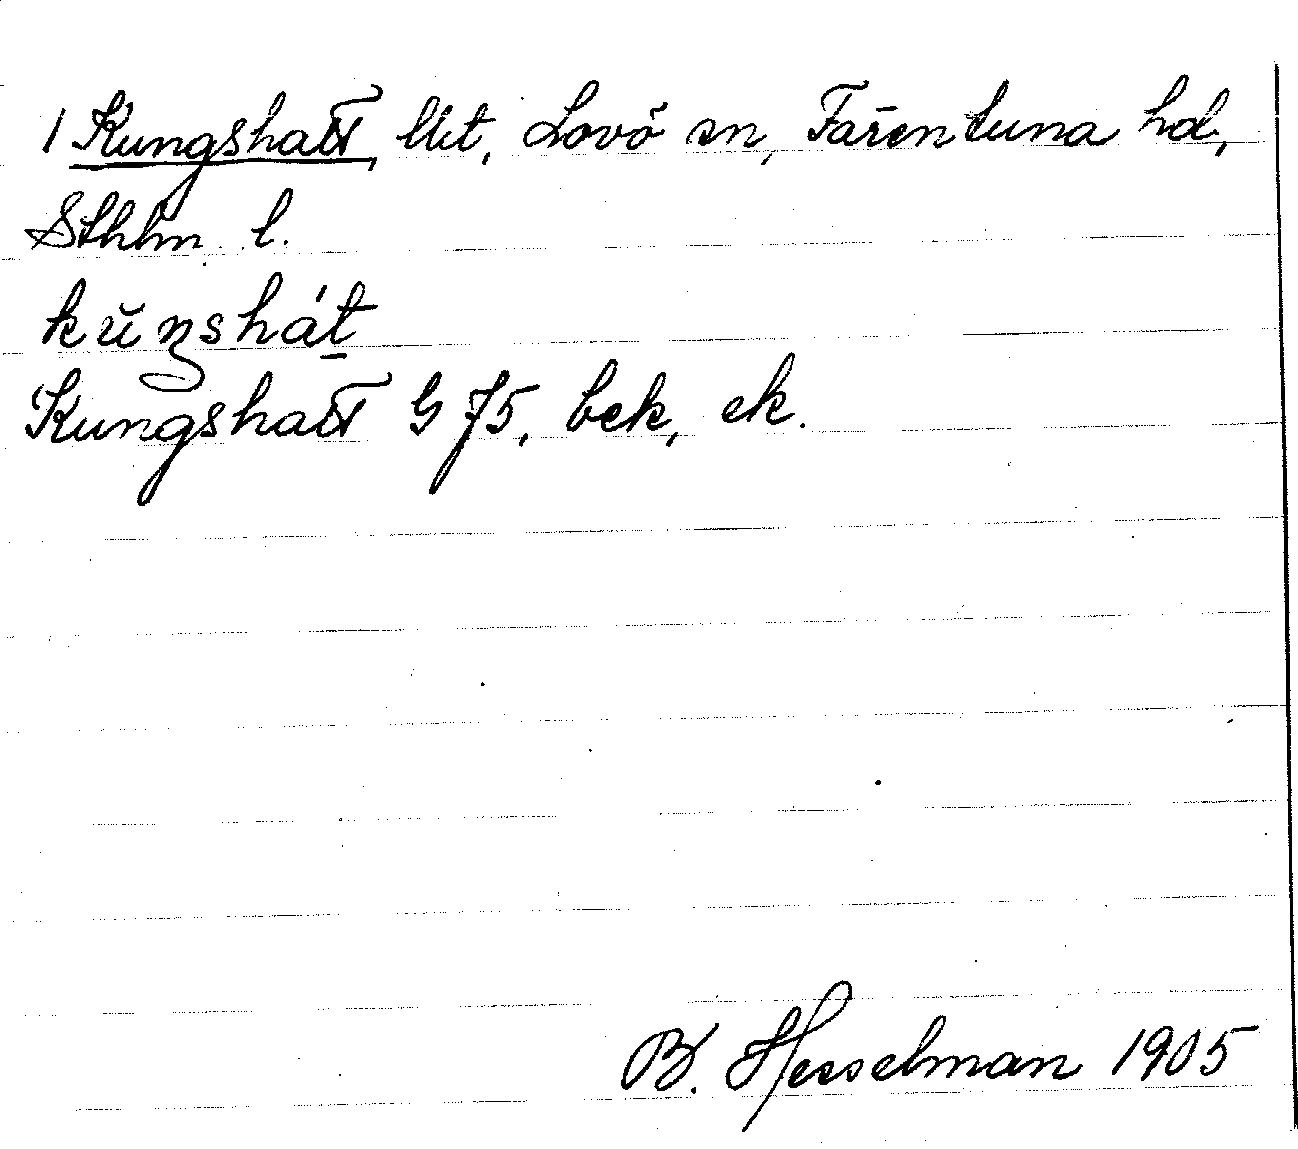 1 Kungshatt, lht, Lovö sn, Färentuna hd,
Sthlm l.
kŭŋshát̠
Kungshatt G 75, bek, ek.
B. Hesselman 1905